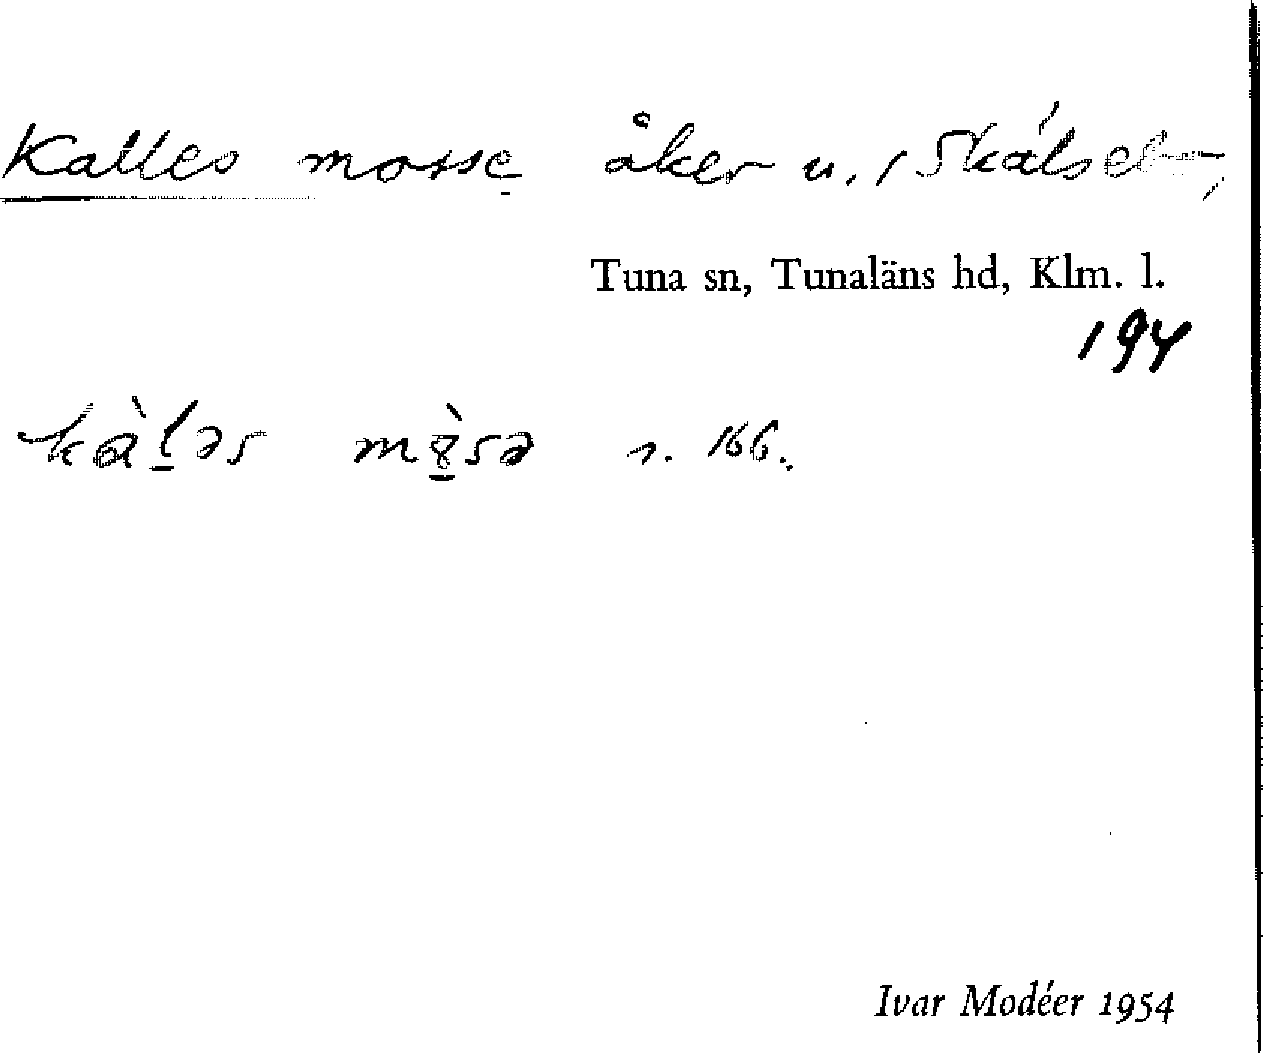 Kalles mosse åker u. Skälset,
Tuna sn, Tunaläns hd, Klm. l.
194
kàl̠əs mòsə s. 166.
Ivar Modéer 1954